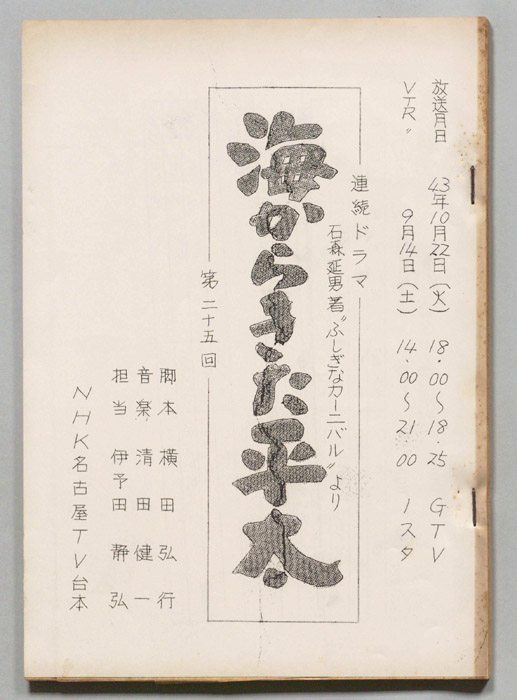 放送月日 43年10月22日(火) 18.00〜18.25 GTV
VTR〃 9月14日(土) 14.00〜21.00 1スタ
連続ドラマ
石森延男著〝ふしぎなカーニバル〟より
海からきた平太
第二十五回
脚本 横田弘行
音楽 清田健一
担当 伊予田静弘
NHK名古屋TV台本